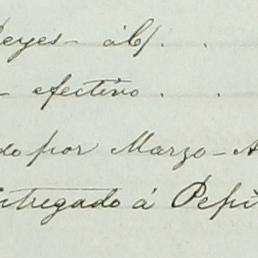 eyes - á b/. .
- efectivo . .
do por Marzo - A
ntregado á Pepi